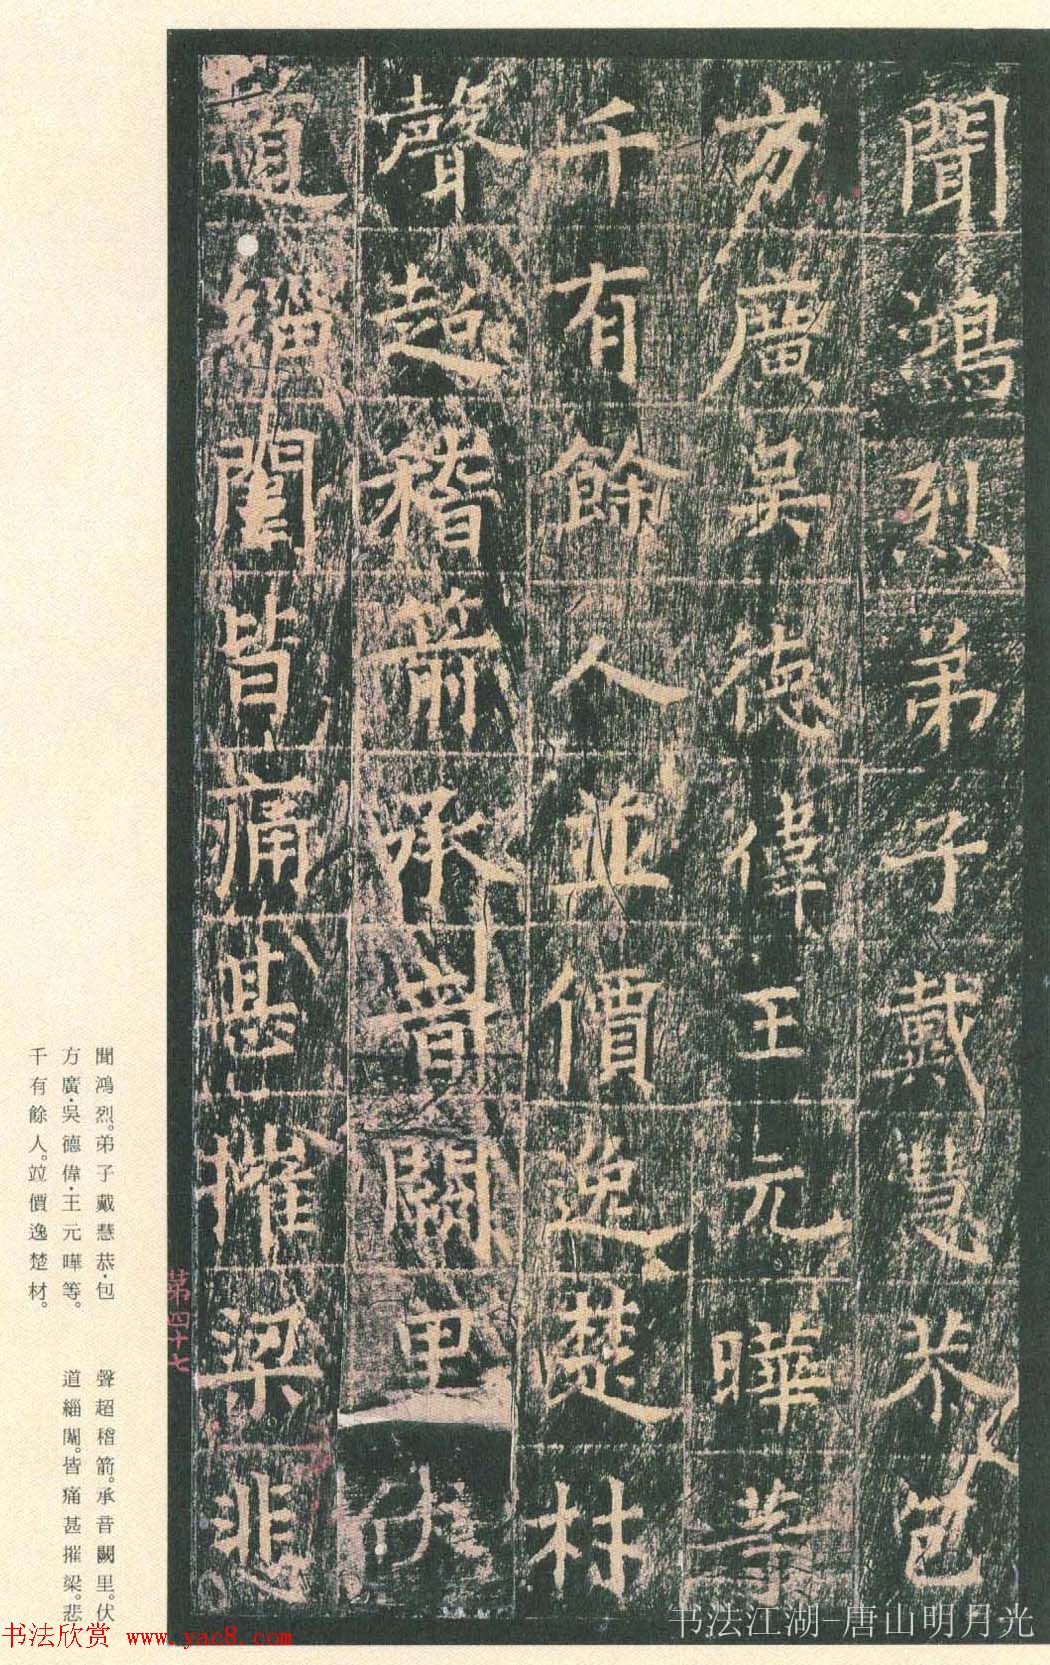 聞鴻烈弟子戴慧恭包
方廣吳德偉王元曄等
千有餘人並價逸楚材
聲超稽箭承音闕里伏
道緇闈皆痛甚摧梁悲
聞鴻烈。弟子戴慧恭·包
方廣·吳德偉·王元曄等。
千有餘人。竝價逸楚材。
聲超稽箭。承音闕里。伏
道緇闈。皆痛甚摧梁。悲
第四十七
书法江湖-唐山明月光
书法欣赏 www.yac8.com